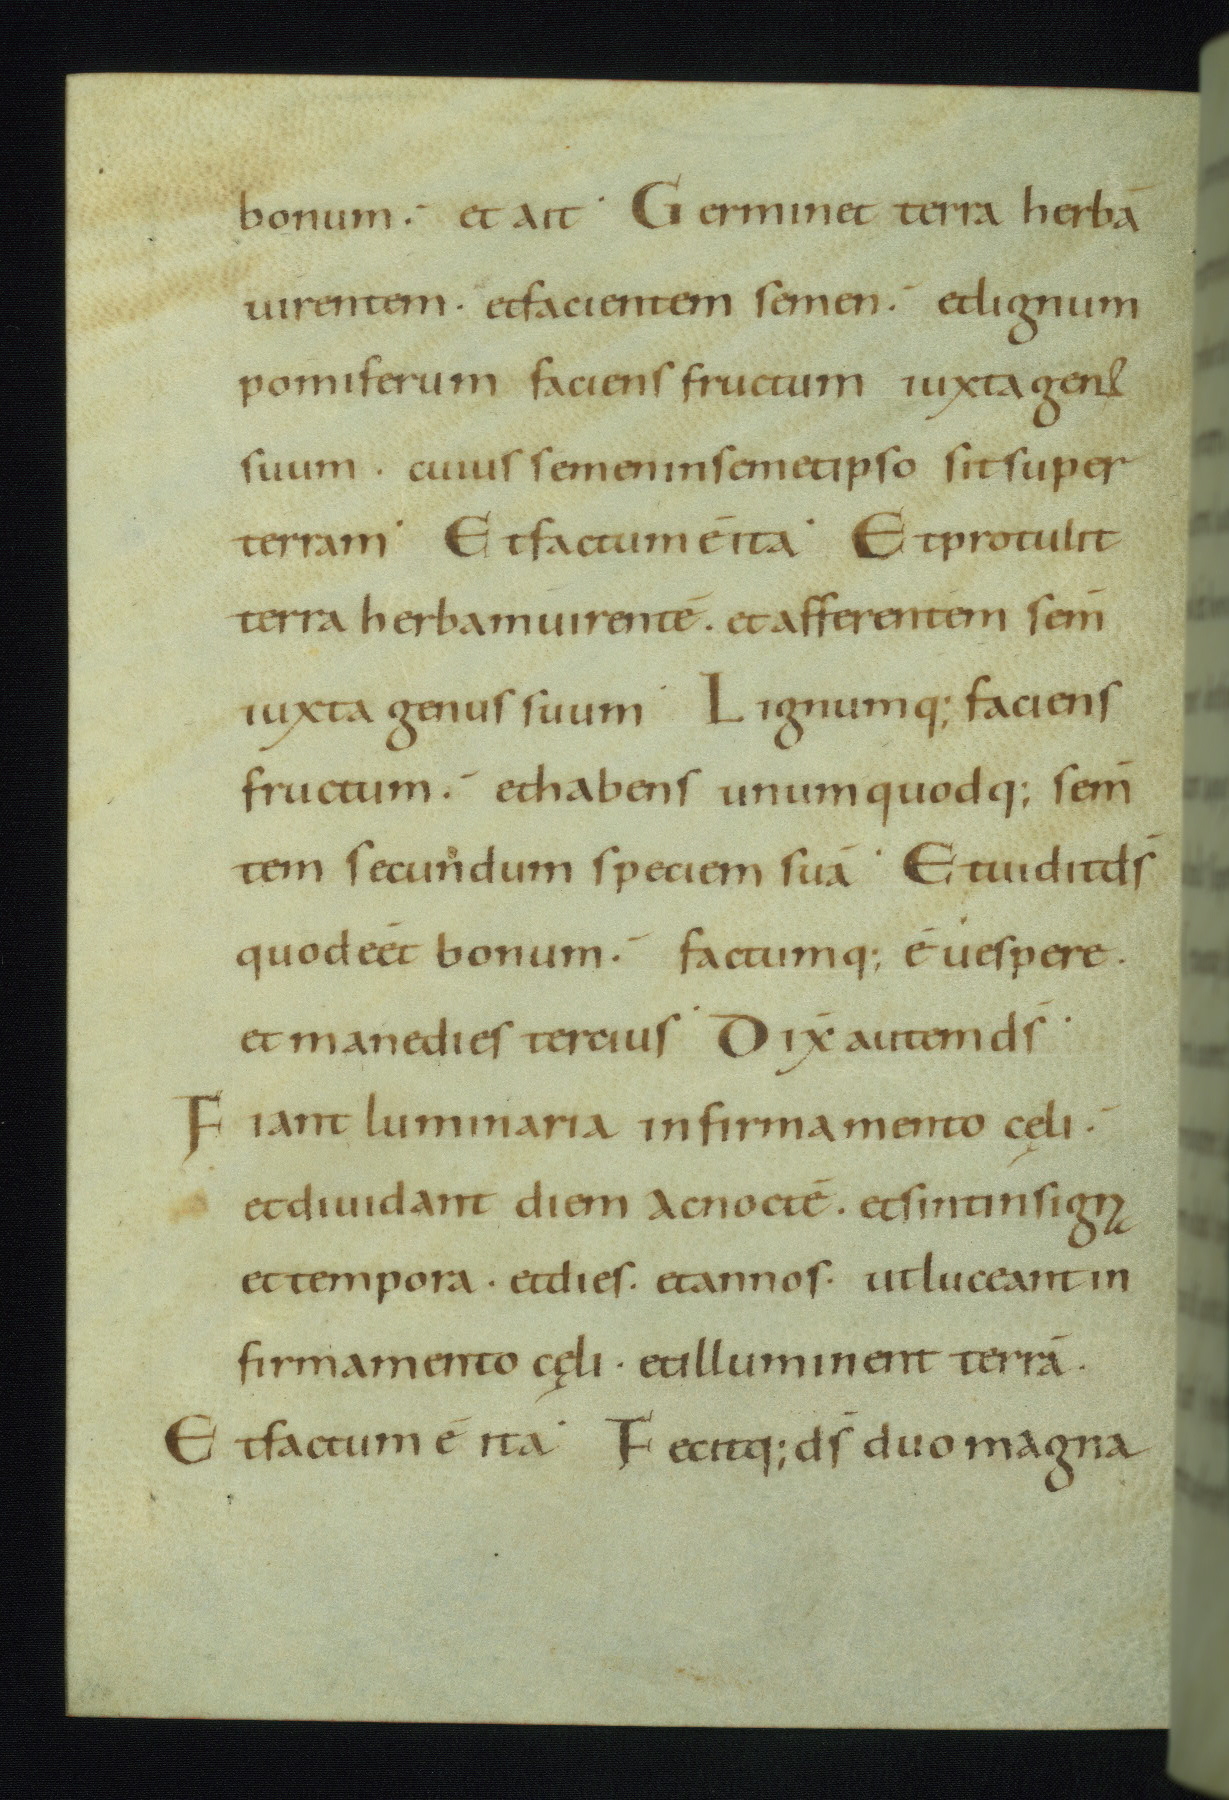 bonum·́ et ait· Germinet terra herbā
uirentem· et facientem semen·́ et lignum
pomiferum faciens fructum iuxta genꝰ
suum· cuius semen in semetipso sit super
terram· Et factum ē ita· Et protulit
terra herbam uirentē· et afferentem sem̄
iuxta genus suum· Lignumq; faciens
fructum·́ et habens unumquodq; sem̄
tem secundum speciem suā· Et uidit ds̄
quod eēt bonum·́ factumq; ē uespere·
et mane dies tercius· Dix̄ autem ds̄·
Fiant luminaria in firmamento cęli·́
et diuidant diem ac noctē· et sint in signꝭ
et tempora· et dies· et annos· ut luceant in
firmamento cęli· et illuminent terrā·
Et factum ē ita· Fecitq; ds̄ duo magna